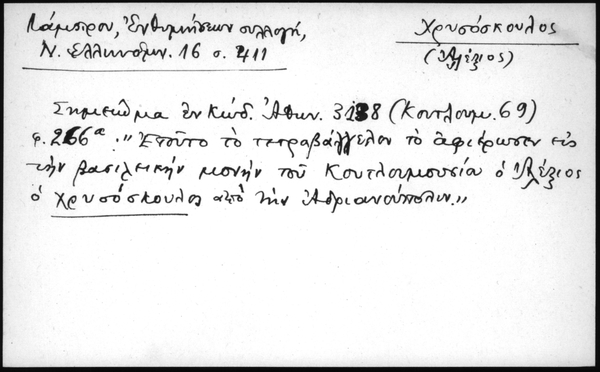 Λάμπρου, Ἐνθυμήσεων συλλογή,
Ν. Ἑλληνομν. 16 σ. 411
Χρυσόσκουλος
(Ἀλέξιος)
Σημείωμα ἐν κώδ. Ἀθων. 3138 (Κουτλουμ. 69)
φ. 266α : „Ἐτοῦτο τὸ τετραβάγγελον τὸ ἀφιέρωσεν εἰς
τὴν βασιλεικὴν μονὴν τοῦ Κουτλουμουσίου ὁ Ἀλέξιος
ὁ Χρυσόσκουλος ἀπὸ τὴν Ἀδριανούπολιν."